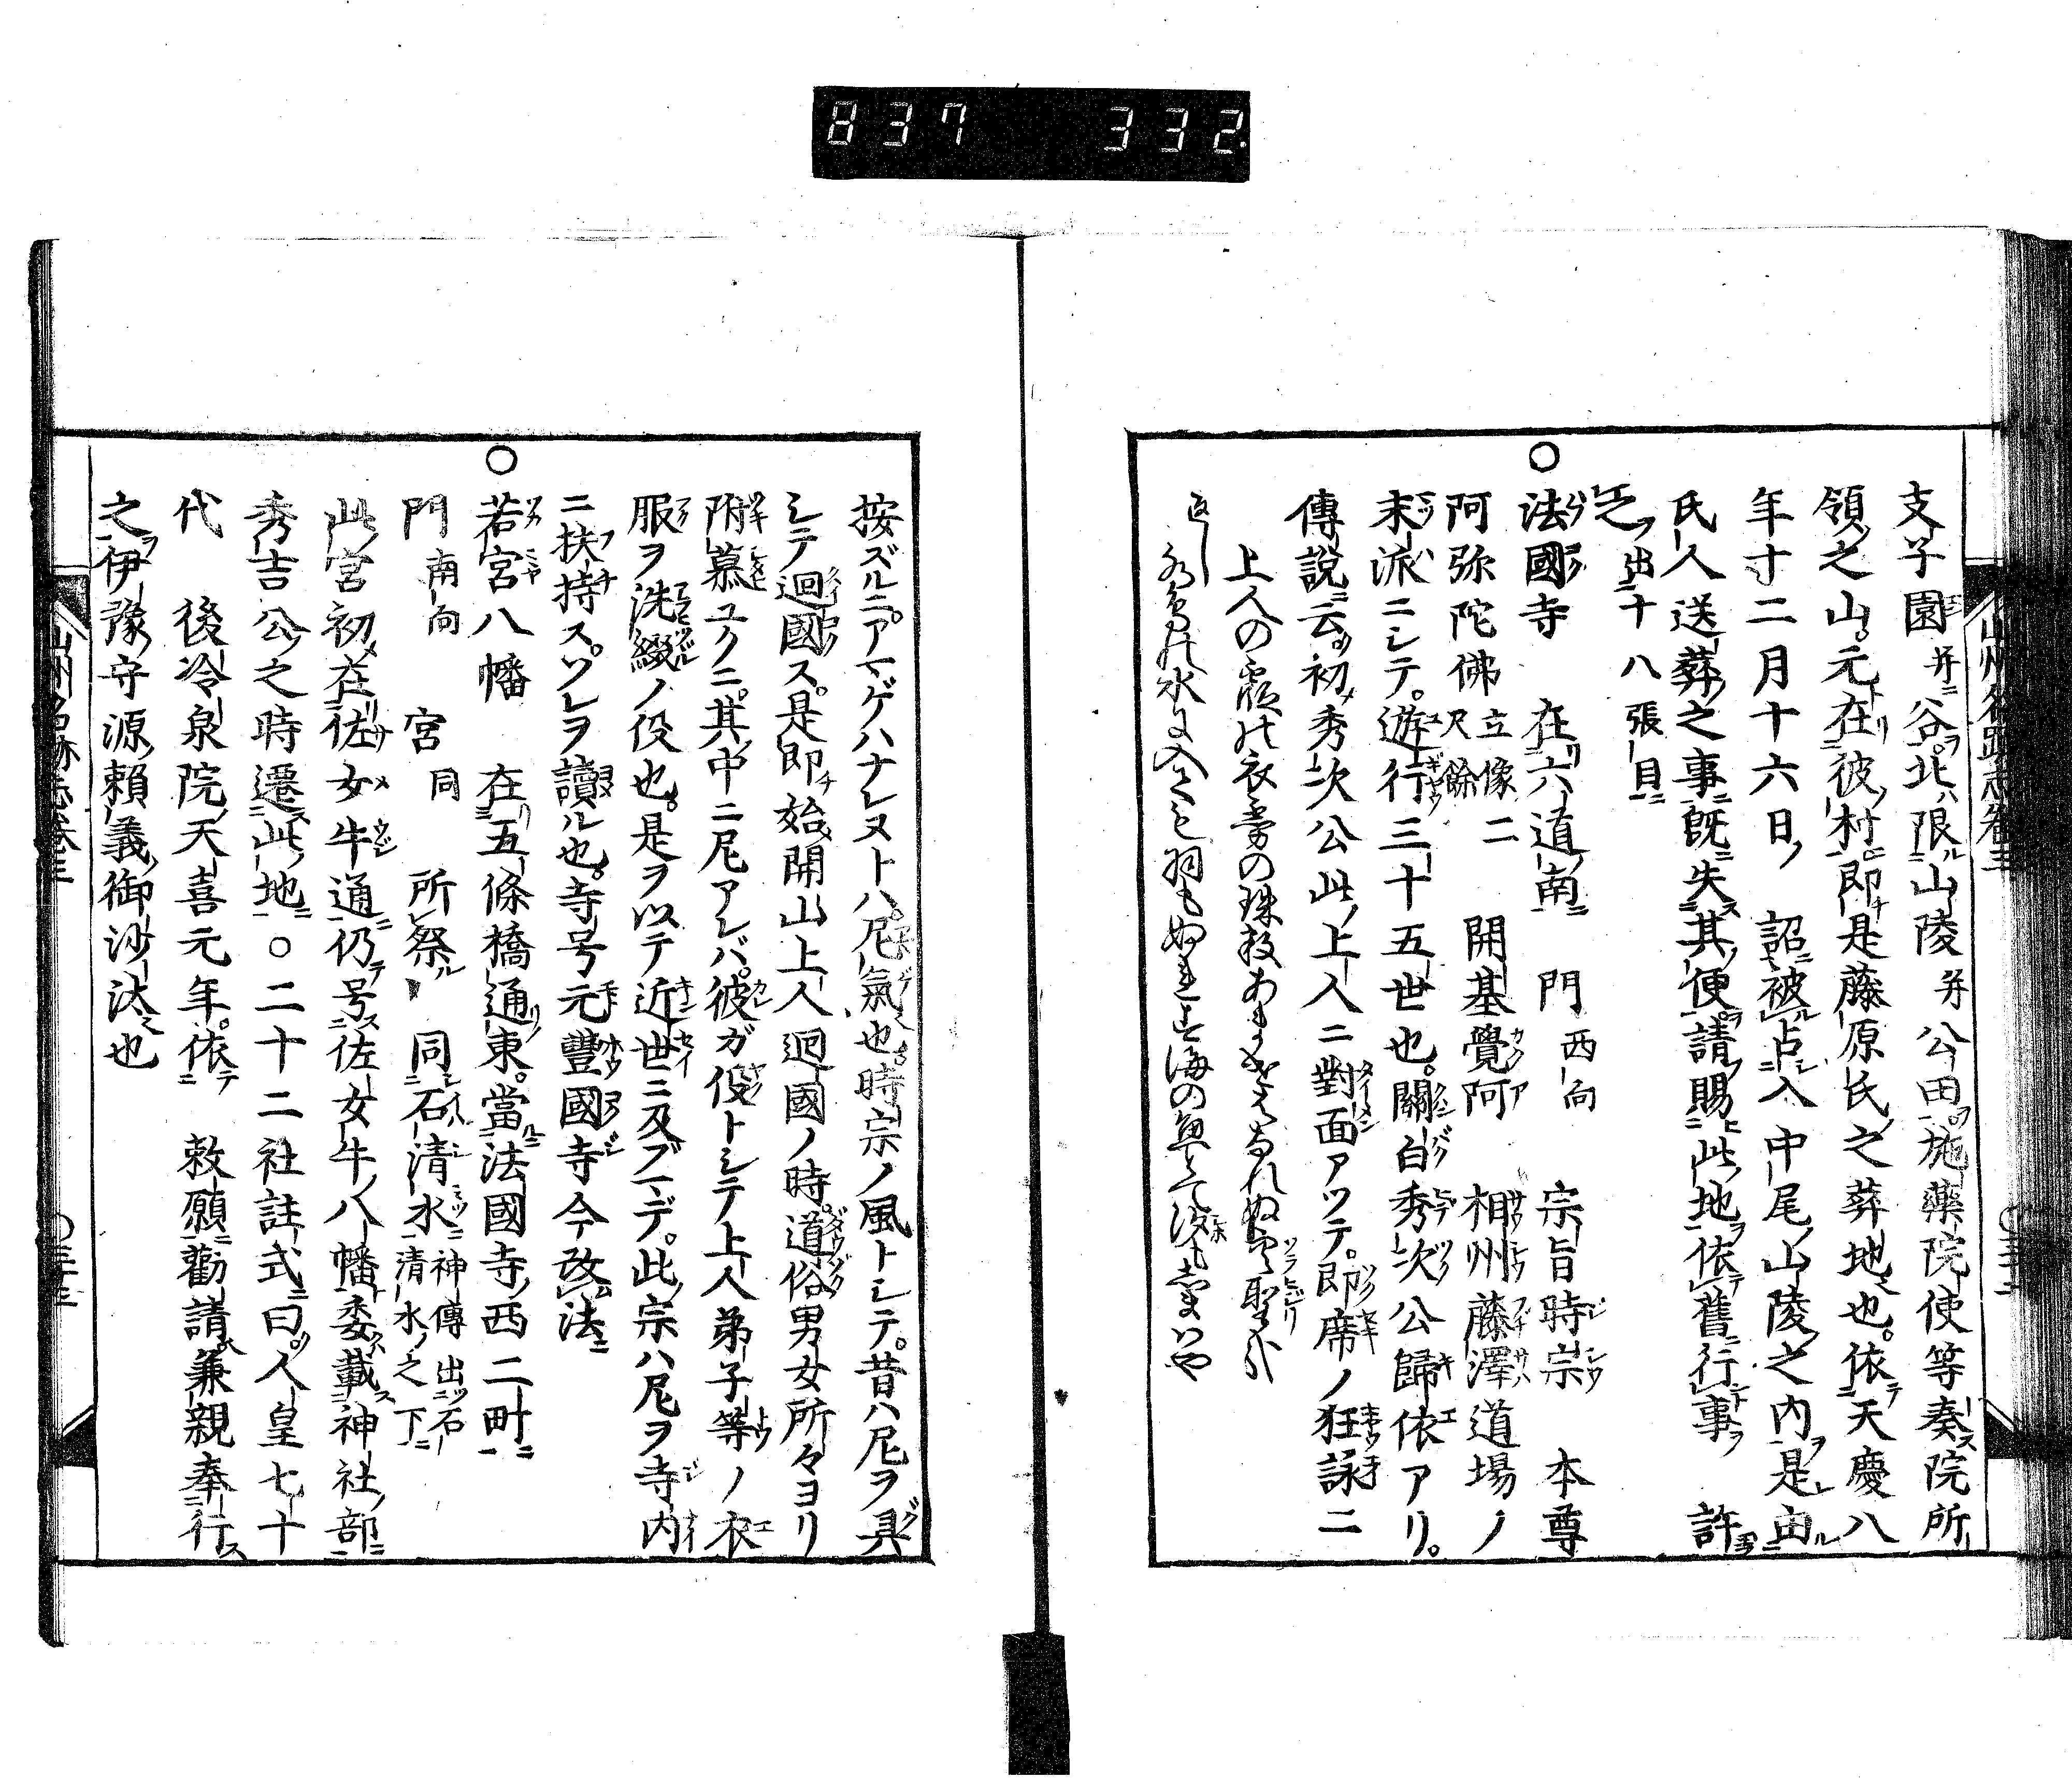 837 332
支子園并谷。北限山陵并公田。施藥院使等奏院所
領之山。元在彼村。即是藤原氏之葬地也。依天慶八
年十二月十六日、詔被占入中尾山陵之内。是由
氏人送葬之事既失其便。請賜此地依舊行事 許
之 出十八張目
○法國寺 在六道南 門西向 宗旨時宗 本尊
阿弥陀佛立像二尺餘 開基覺阿 相州藤澤道場ノ
末派ニシテ。遊行三十五世也。關白秀次公歸依アリ。
傳説云初秀次公此上人ニ對面アツテ。即席ノ狂詠ニ
上人の衣の珠数
返し
水に入ても海の魚
按ズルニ。アマゲハナレヌトハ。尼氣也。時宗ノ風トシテ。昔ハ尼ヲ具
シテ迴國ス。是即始開山上人迴國ノ時。道俗男女所々ヨリ
附慕ユクニ。其中ニ尼アレバ。彼ガ役トシテ上人弟子等ノ衣
服ヲ洗綴ノ役也。是ヲ以テ近世ニ及ブマデ。此宗ハ尼ヲ寺内
ニ扶持ス。ソレヲ讀ル也。寺号元豐國寺今改法
○若宮八幡 在五條橋通東。當法國寺西二町
門南向 宮同 所祭同石清水神傳出石清水之下
此宮初在佐女牛通仍号佐女牛八幡委載神社部
秀吉公之時遷此地○二十二社註式曰。人皇七十
代 後冷泉院天喜元年。依 敕願勸請兼親奉行
之伊豫守源頼義御沙汰也
山州名跡志卷三